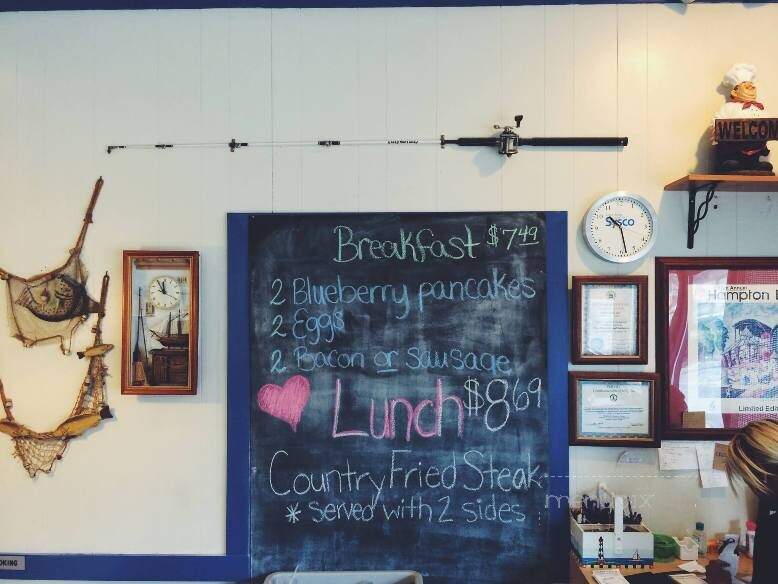 WELCOM
Sysco
Breakfast $7.49
2 Blueberry pancakes
2 Eggs
2 Bacon or Sausage
Lunch $8.69
Country Fried Steak
* Served with 2 sides
Annual
Hampton
Limited Edi
OKING